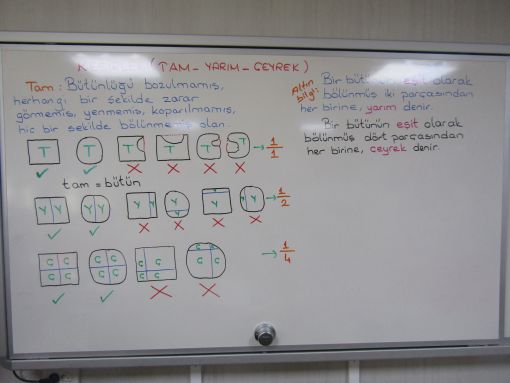 KESİRLER (TAM - YARIM - ÇEYREK)
Tam: Bütünlüğü bozulmamış,
herhangi bir şekilde zarar
görmemiş, yenmemiş, koparılmamış,
hiç bir şekilde bölünmemiş olan.
T T T T T T → 1/1
tam = bütün
Y Y Y Y Y Y Y Y Y Y → 1/2
Ç Ç Ç Ç Ç Ç Ç Ç
Ç Ç Ç Ç Ç Ç Ç Ç → 1/4
Altın bilgi
Bir bütünün eşit olarak
bölünmüş iki parçasından
her birine, yarım denir.
Bir bütünün eşit olarak
bölünmüş dört parçasından
her birine, çeyrek denir.